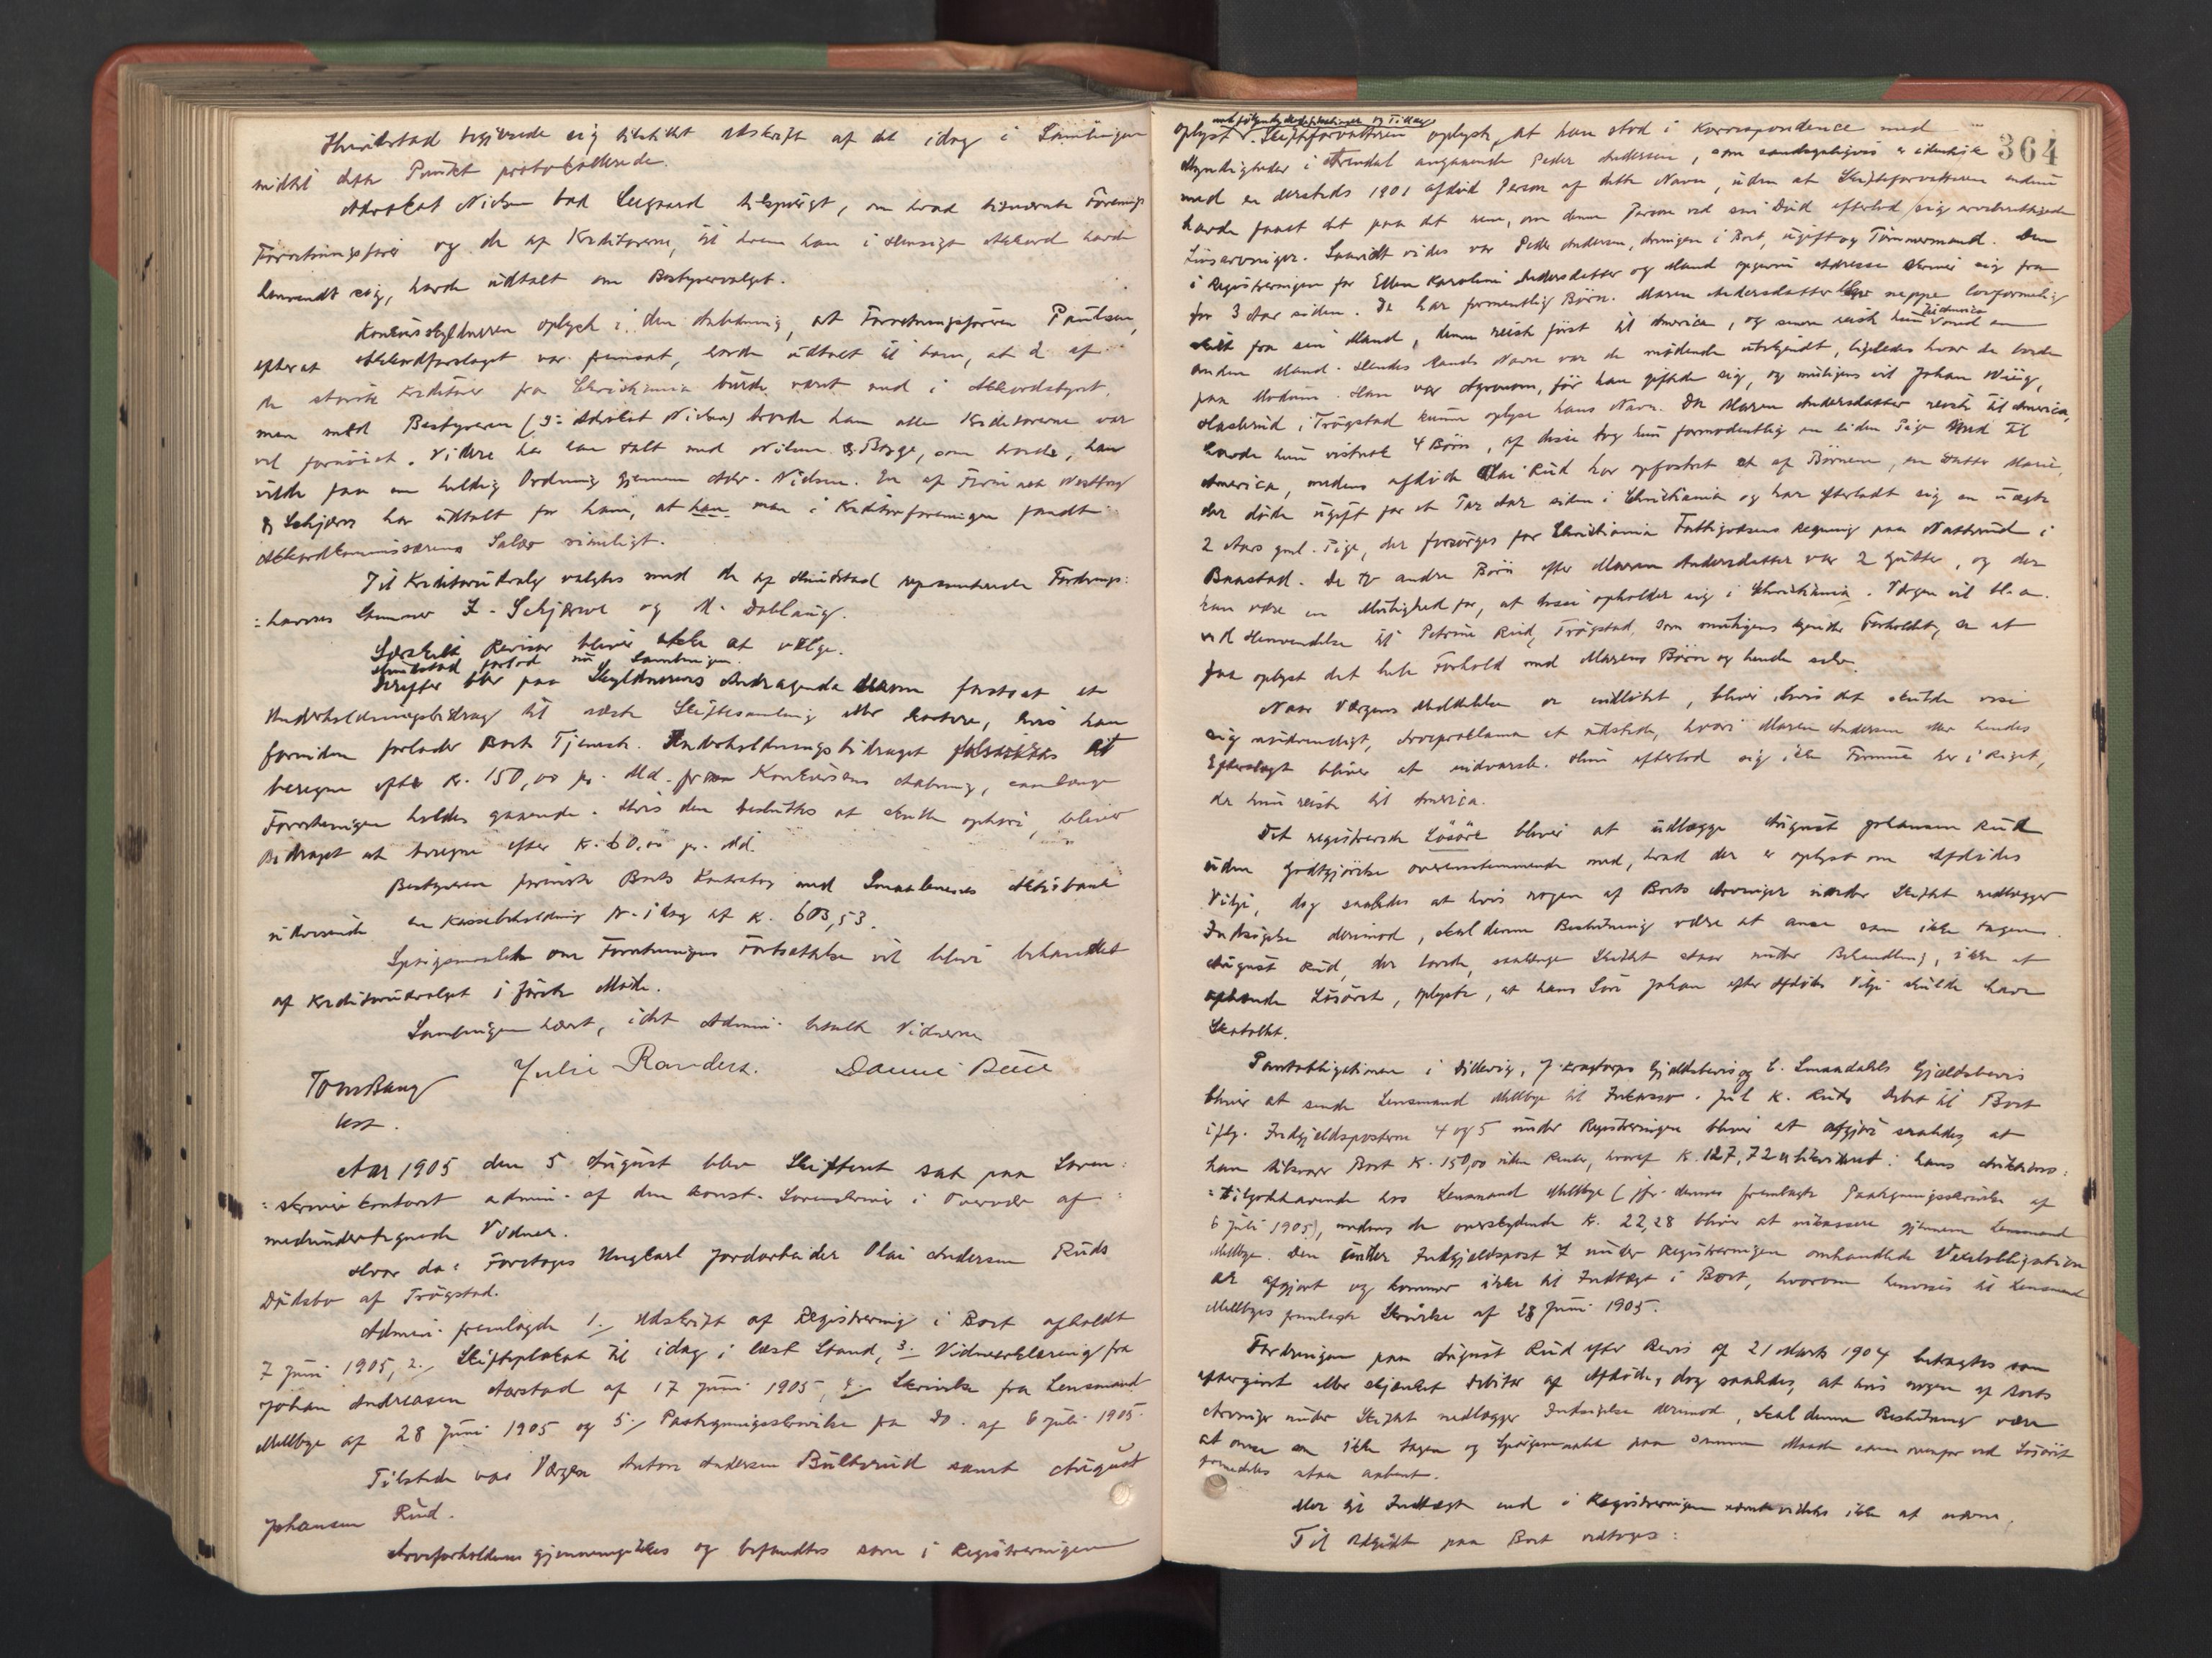 Hvidstad begjærede sig tilstillet Udskrift af det idag i Samlingen
indtil dette Punkt protokollerede.
Advokat Nielsen bad Seigaard tilspurgt, om hvad Forretningsfører og de af Kreditorerne, til hvem han i Hensigt Akkord havde
henvendt sig, havde udtalt om Bostyrervalget.
Konkursskyldneren oplyste i den Anledning, at Forretningsføreren Paulsen,
efterat Akkordforslaget var fremsat, havde udtalt til ham, at 2 af
de største Kreditorer fra Christiania burde været med i Akkordstyret,
men med Bestyreren (ɔ: Advokat Nielsen) troede han alle Kreditorerne var
vel fornøiet. Videre har han talt med Nilsen & Borge, som troede, han
vilde faa en heldig Ordning gjennem Adv. Nielsen. En af Firmaet
& Schjerve har udtalt for ham, at han man i Kreditorforeningen fandt
Akkordkommissærens Salær rimeligt.
Til Kreditorudvalg valgtes med de af Hvidstad repræsenterede Fordrings-
=haveres Stemmer Z. Schjerve og M. Dæhlaug.
Særskilt Revisor bliver ikke at vælge.
Hvidstad forlod nu Samlingen.
Derefter blev paa Skyldnerens Andragende ham fastsat et
Underholdningsbidrag til næste Skiftesamling eller kortere, hvis han
forinden forlader Boets Tjeneste. Underholdningsbidraget fastsattes at
beregne efter K. 150,00 pr. Md. fra Konkursens Aabning, saalænge
Forretningen holdes gaaende. Hvis den besluttes at skulle ophøre, bliver
Bidraget at beregne efter K. 60,00 pr. Md.
Bestyreren foreviste Boets Kontrabog med Smaalenenes Aktiebank
udvisende en Kassebeholdning pr. idag af K. 603,53.
Spørgsmaalet om Forretningens Fortsættelse vil blive behandlet
af Kreditorudvalget i første Møde.
Samlingen hævet, idet Admin. betalte Vidnerne
Tom Bang Julie Randers. Dannie Buee
kst.
Aar 1905 den 5 August blev Skifteret sat paa Soren-
=skriverkontoret admin. af den konst. Sorenskriver i Overvær af
medundertegnede Vidner.
Hvor da: Foretoges Ungkarl Jordarbeider Olai Andersen Ruds
Dødsbo af Trøgstad.
Admin. fremlagde 1./ Udskrift af Registrering i Boet afholdt
7 Juni 1905, 2./ Skifteplakat til idag i læst Stand, 3./ Vidneerklæring fra
Johan Andreasen Aarstad af 17 Juni 1905, 4./ Skrivelse fra Lensmand
Mellbye af 28 Juni 1905 og 5./ Paategningsskrivelse fra Do. af 6 Juli 1905.
Tilstede var Værgen Anton Andersen Bulterud samt August
Johansen Rud.
Arveforholdene gjennemgikkes og befandtes som i Registreringen
364
med følgende Rektifikationer og Tillæg
oplyst. Skifteforvalteren oplyste, at han stod i Korrespondence med
Myndigheder i Arendal angaaende Peder Andersen, som sandsynligvis er identisk
med en dersteds 1901 afdød Person af dette Navn, uden at Skifteforvalteren endnu
havde faaet det paa det rene, om denne Person ved sin Død efterlod sig arveberettigede
Livsarvinger. Saavidt vides var Peder Andersen, Arvingen i Boet, ugift og Tømmermand. Den
i Registreringen for Ellen Karoline Andersdatter og Mand opgivne Adresse skriver sig fra
for 3 Aar siden. De har formentlig Børn. Maren Andersdatter blev neppe lovformelig
skilt fra sin Mand, denne reiste først til America, og senere reiste hun til America med en
anden Mand. Hendes Mands Navn var de mødende ubekjendt, ligeledes hvor de boede
paa Modum. Han var Agronom, før han giftede sig, og muligens vil Johan Wiig,
Haslerud i Trøgstad kunne oplyse hans Navn. Da Maren Andersdatter reiste til America,
havde hun vistnok 4 Børn, af disse tog hun formodentlig en liden Pige med til
America, medens afdøde Olai Rud har opfostret et af Børnene, en Datter Marie,
der døde ugift for et Par Aar siden i Christiania og har efterladt sig en uægte
2 Aars gml. Pige, der forsørges for Christiania Fattigvæsens Regning paa Natterud i
Baastad. De to andre Børn efter Maren Andersdatter var 2 Gutter, og der
kan være en Mulighed for, at disse opholder sig i Christiania. Værgen vil bl. a.
ved Henvendelse til Petrine Rud, Trøgstad, som muligens kjender Forholdet, se at
faa oplyst det hele Forhold med Marens Børn og hende selv.
Naar Værgens Meddelelse er indløbet, bliver, hvis det skulde vise
sig nødvendigt, Arveproklama at udstede, hvori Maren Andersen eller hendes
Efterslægt bliver at indvarsle. Hun efterlod sig ikke Formue her i Riget,
da hun reiste til America.
Det registrerede Løsøre bliver at udlægge August Johansen Rud
uden Godtgjørelse overensstemmende med, hvad der er oplyst om Afdødes
Vilje, dog saaledes at hvis nogen af Boets Arvinger under Skiftet nedlægger
Indsigelse derimod, skal denne Beslutning være at anse som ikke tagen.
August Rud, der lovede, saalænge Skiftet staar under Behandling, ikke at
afhænde Løsøret, oplyste, at hans Søn Johan efter Afdødes Vilje skulde have
Skatollet.
Pantobligationen i Dillevig, J. Kragtorps Gjældsbevis og C. Smaadahls Gjældsbevis
bliver at sende Lensmand Mellbye til Inkasso. Juel K. Ruds Debet til Boet
iflg. Indgjeldsposterne 4 og 5 under Registreringen bliver at afgjøre saaledes, at
han tilsvarer Boet K. 150,00 uden Renter, hvoraf K. 127,72 er likvideret i hans Auktions-
=tilgodehavende hos Lensmand Mellbye (jfr. dennes fremlagte Paategningsskrivelse af
6 Juli 1905), medens de overskydende K. 22,28 bliver at inkassere gjennem Lensmand
Mellbye. Den under Indgjeldspost 7 under Registreringen omhandlede Vexelobligation
er afgjort og kommer ikke til Indtægt i Boet, hvorom henvises til Lensmand
Mellbyes fremlagte Skrivelse af 28 Juni 1905.
Fordringen paa August Rud efter Bevis af 21 Marts 1904 betragtes som
eftergivet eller skjænket Debitor af Afdøde, dog saaledes, at hvis nogen af Boets
Arvinger under Skiftet nedlægger Indsigelse derimod, skal denne Beslutning være
at anse som ikke tagen og Spørgsmaalet paa samme Maade som ovenfor ved Løsøret
formedeles staa aabent.
Mer til Indtægt end i Registreringen nævnt vidstes ikke at være.
Til Udgift paa Boet vedtoges: